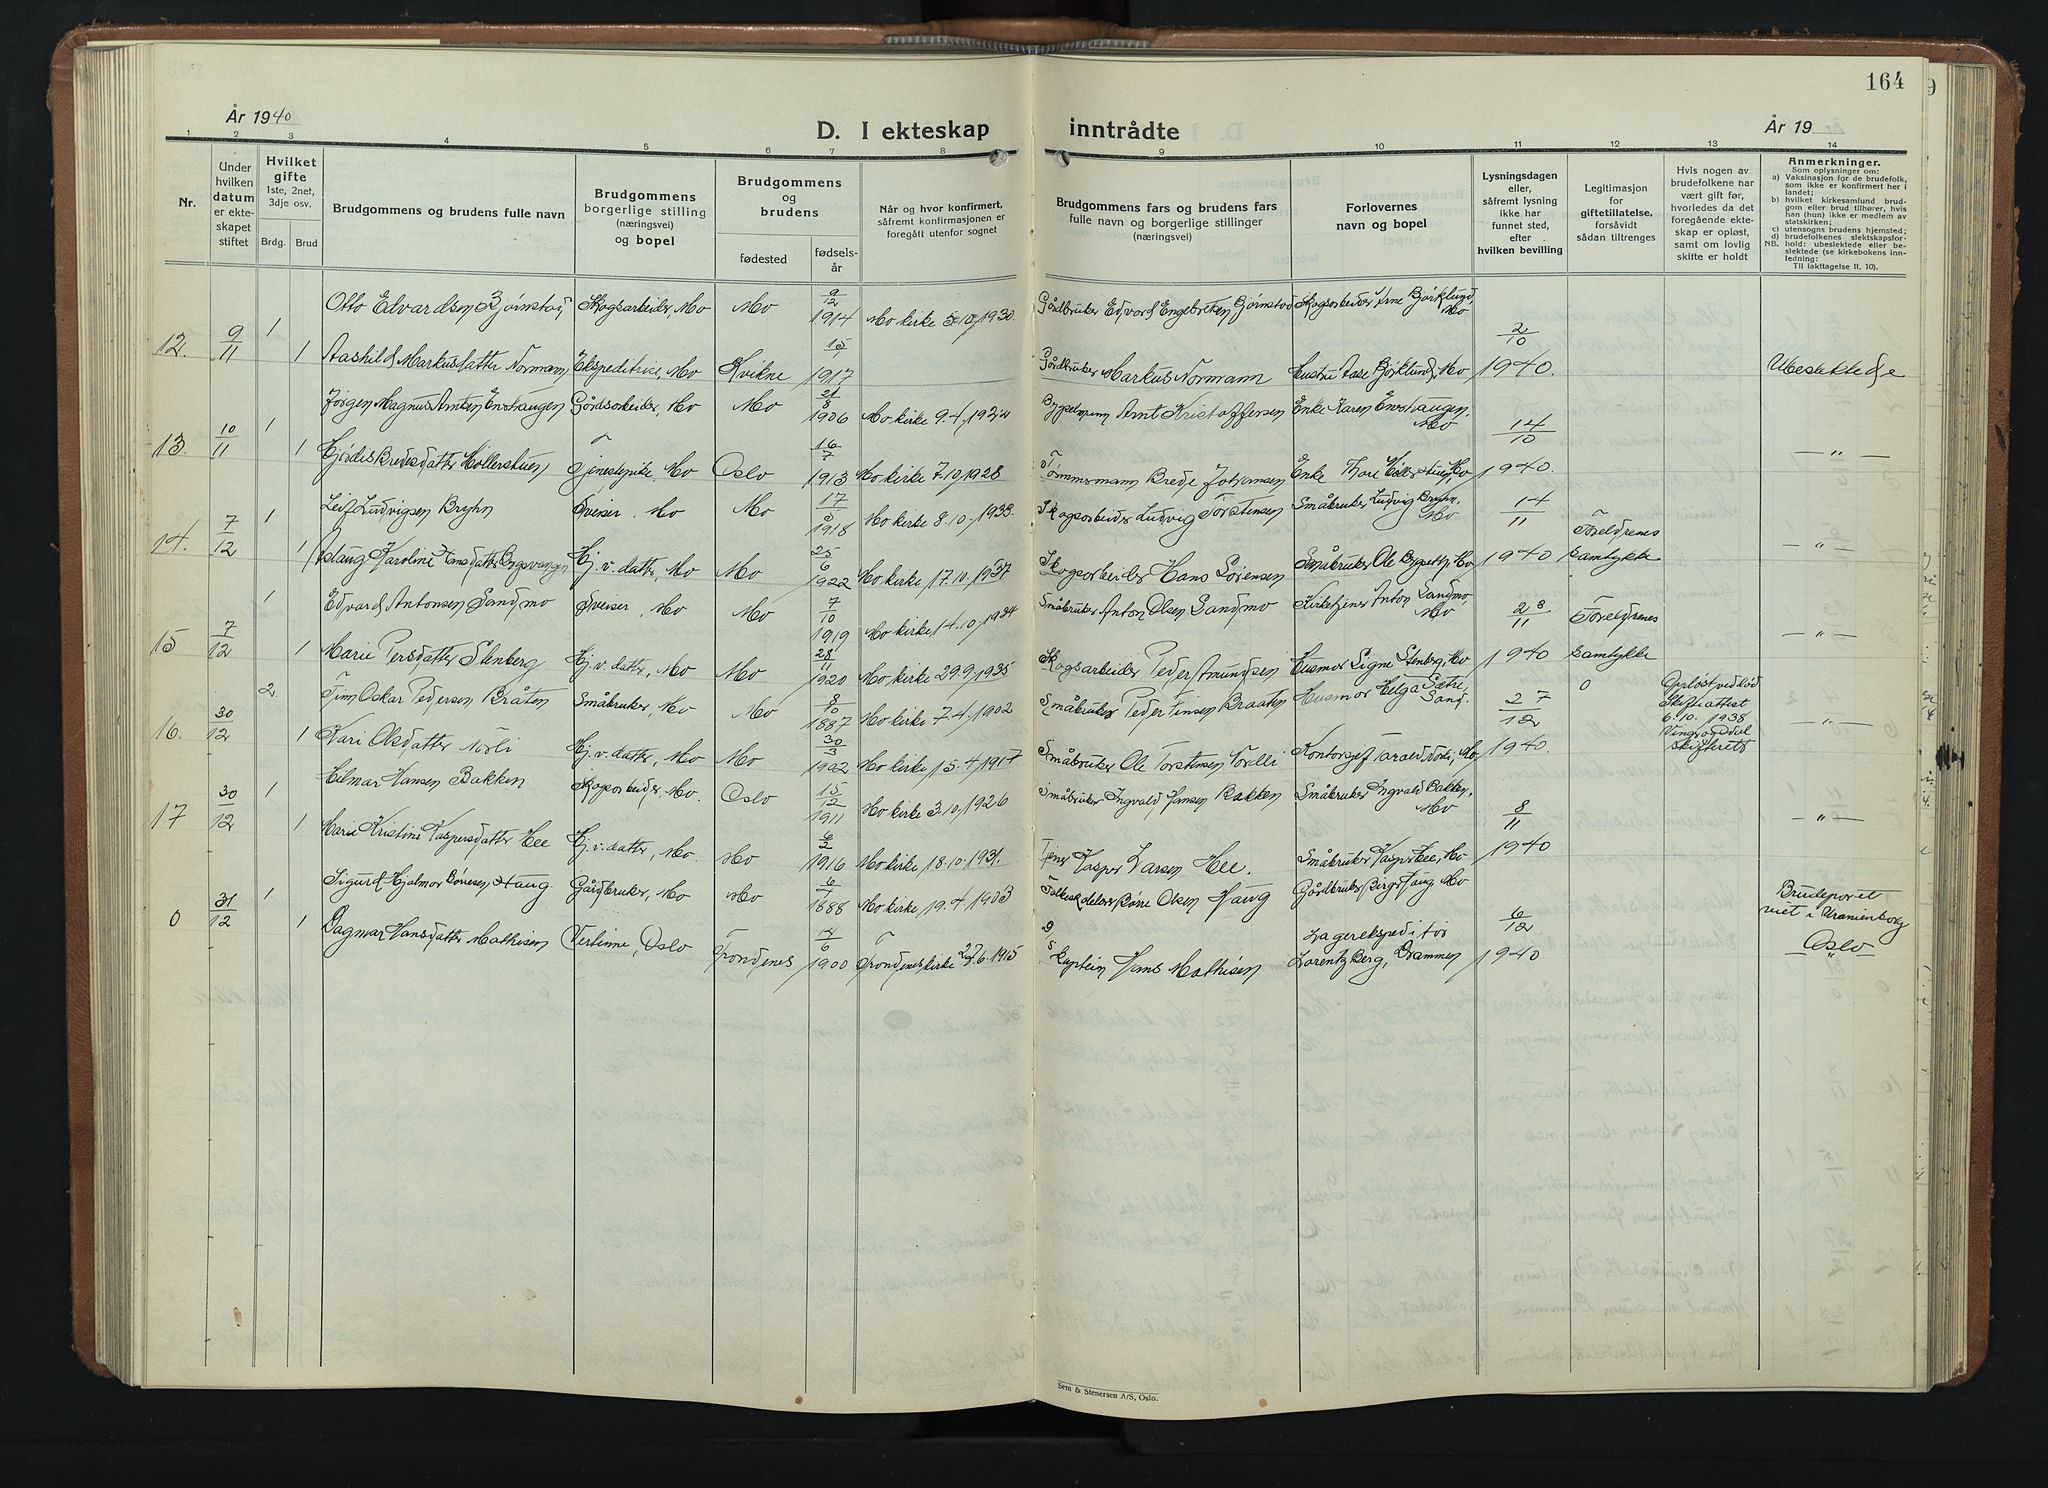 164
År 1940
D. I ekteskap inntrådte
År 19
1 2 3 4 5 6 7 8 9 10 11 12 13 14
Nr.
Under hvilken datum er ekteskapet stiftet
Hvilket gifte 1ste, 2net, 3dje osv.
Brdg. Brud
Brudgommens og brudens fulle navn
Brudgommens borgerlige stilling (næringsvei) og bopel
Brudgommens og brudens
fødested fødselsår
Når og hvor konfirmert, såfremt konfirmasjonen er foregått utenfor sognet
Brudgommens fars og brudens fars fulle navn og borgerlige stillinger (næringsvei)
Forlovernes navn og bopel
Lysningsdagen eller, såfremt lysning ikke har funnet sted, efter hvilken bevilling
Legitimasjon for giftetillatelse, forsåvidt sådan tiltrenges
Hvis nogen av brudefolkene har vært gift før, hvorledes da det foregående ekteskap er opløst, samt om lovlig skifte er holdt
Anmerkninger.
Som oplysning om:
a) Vaksinasjon for de brudefolk, som ikke er konfirmert her i landet;
b) hvilket kirkesamfund brudgom eller brud tilhører, hvis han (hun) ikke er medlem av statskirken;
c) utensogns brudens hjemsted;
d) brudefolkenes slektskapsforhold: ubeslektede eller beslektede (se kirkebokens innledning:
NB.
Til iakttagelse II. 10).
12. 9/11 1 Otto Edvardsen Bjørnstad, Skogsarbeider, Mo Mo 9/12 1914 Mo kirke 5.10.1930. Gårdbruker Edvard Engebretsen Bjørnstad Skogsarbeider Arne Bjørklund, Mo 2/10
1 Aashild Markusdatter Normann, Ekspeditrise, Mo Kvikne 1917 Gårdbruker Markus Normann Hustru Aase Bjørklund, Mo 1940. Ubeslektede
13. 10/11 1 Jørgen Magnus Arntsen Enshaugen Gårdsarbeider, Mo Mo 21/8 1906 Mo kirke 9.4. Arnt Kristoffersen Enke Karen Enshaugen, Mo 14/10
1 Hjørdis Bredesdatter Møllerstuen, Tjenestepike, Mo Oslo 16/7 1913 Mo kirke 7.10.1928 Tømmermann Brede Johansen Enke Thore Møllerstuen, Mo 1940. — " —
14. 7/12 1 Leif Ludvigsen Bryhn Sveiser, Mo Mo 17/8 1918 Mo kirke 8.10.1933. Skogsarbeider Ludvig Torstensen Småbruker Ludvig Bryhn, Mo 14/11 Foreldrenes
1 Aslaug Karoline Hansdatter Bygsvangen Hj.v. datter, Mo Mo 25/6 1922 Mo kirke 17.10.1937 Skogsarbeider Hans Sørensen Småbruker Ole Mo 1940 samtykke — " —
15 7/12 1 Edvard Antonsen Sandmo Sveiser, Mo Mo 7/10 1919 Mo kirke 14.10.1934 Småbruker Anton Olsen Sandmo Kirketjener Anton Sandmo, Mo 28/11 Foreldrenes
1 Marie Persdatter Stenberg Hj.v. datter, Mo Mo 28/11 1920 Mo kirke 29.9.1935 Skogsarbeider Peder Amundsen Husmor Signe Stenberg, Mo 1940 samtykke — " —
16. 30/12 2. Finn Oskar Pedersen Bråten Småbruker, Mo Mo 8/10 1887 Mo kirke 7.4.1902 Småbruker Peder Finsen Braaten Husmor Helga Sætre, Sand. 27/12 0 Opløst ved død Skifteattest 6.10.1938 Vinger og Odal skifterett
1 Kari Olsdatter Norli Hj.v. datter, Mo Mo 30/3 1902 Mo kirke 15.4.1917 Småbruker Ole Torstensen Norli, Mo 1940. — " —
17 30/12 1 Hilmar Hansen Bakken Skogsarbeider, Mo. Oslo 15/12 1911 Mo kirke 3.10.1926 Småbruker Ingvald Hansen Bakken Småbruker Ingvald Bakken, Mo 8/11
1 Marie Kristine Kaspersdatter Hee Hj.v. datter, Mo. Mo 1916 Mo kirke 18.10.1931. Kasper Larsen Hee. Småbruker Kasper Hee, Mo 1940 — " —
0 31/12 1 Sigurd Hjalmar Børresen Haug Gårdbruker, Mo Mo 1888 Mo kirke 19.4.1903 Børre Olsen Haug Gårdbruker Mo 6/12
1 Dagmar Hansdatter Mathisen Oslo Trondenes 1900 Trondenes kirke 27.6.1915 Skaptein Hans Mathisen Lagerekspeditør Lorentz Berg, Drammen 1940 Brudeparet viet i Uranienborg Oslo
Sem & Stenersen A/S, Oslo.